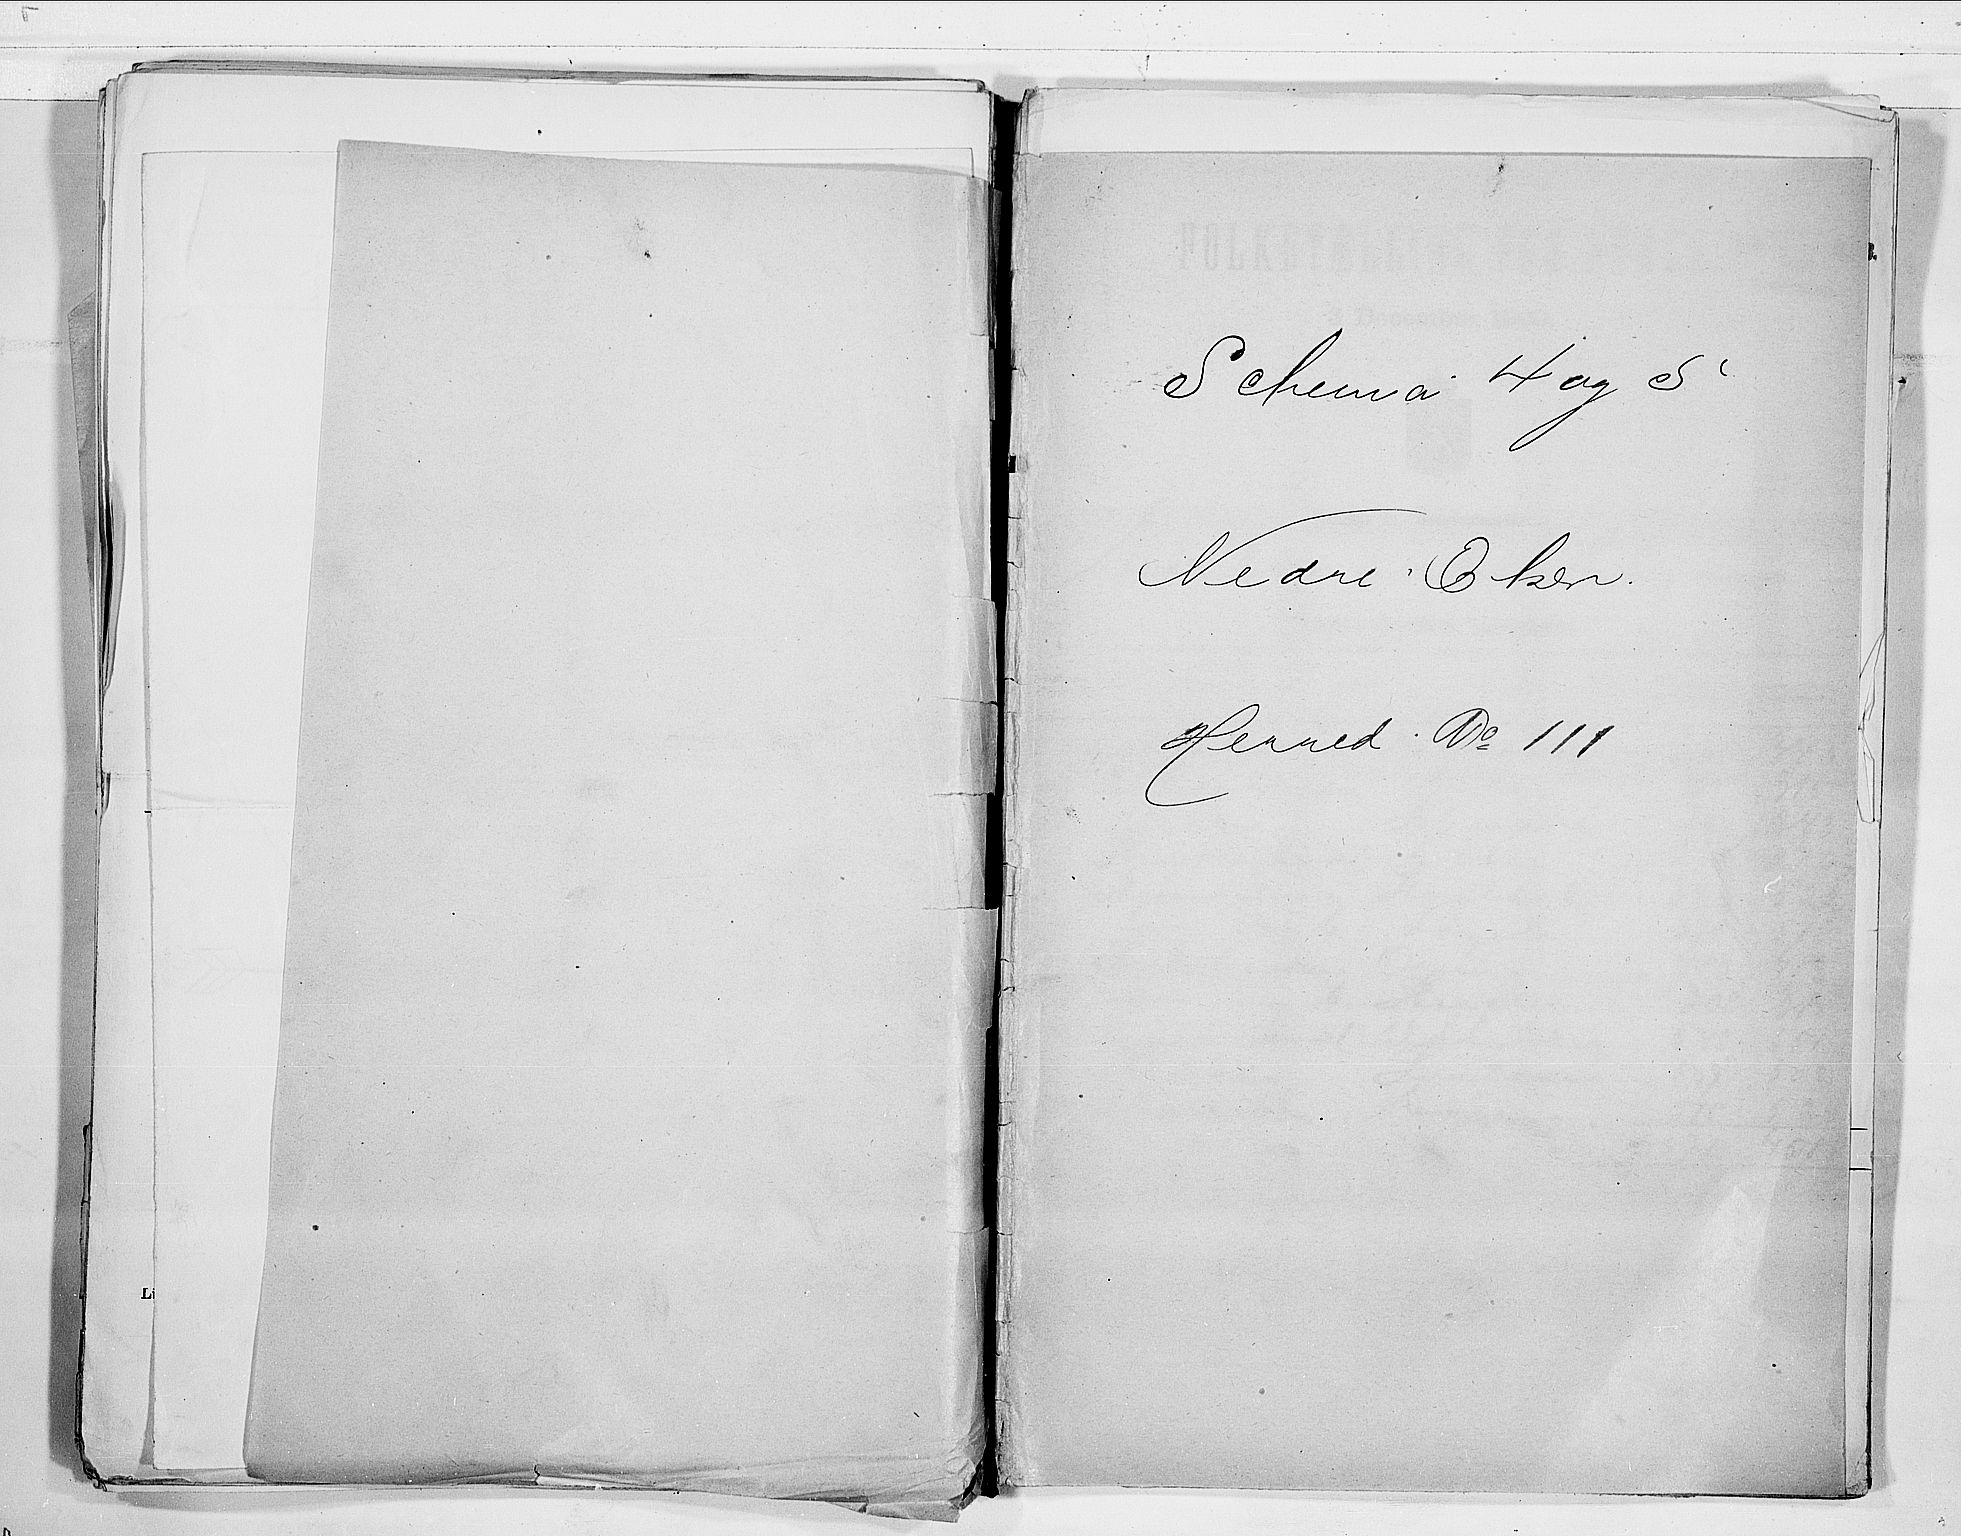 Schema 4 og 5
Nedre Eker.
Herred No 111